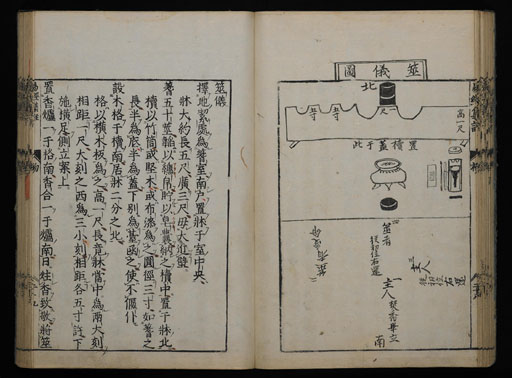 筮儀圖
北
高一尺
置櫝蓋于此
主人
主人焚香畢立
筮者
南
筮儀
擇地絜處為蓍室南戶置牀于室中央
牀大約長五尺廣三尺毋太近壁
蓍五十莖韜以纁帛貯以皂囊納之櫝中置于牀北
櫝以竹筒或堅木或布漆為之圓徑三寸如蓍之
長半為底半為蓋下別為臺函之使不偃仆
設木格于櫝南居牀二分之北
格以橫木板為之高一尺長竟牀當中為兩大刻
相距一尺大刻之西為三小刻相距各五寸許下
施橫足側立案上
置香爐一于格南香合一于爐南日炷香致敬將筮